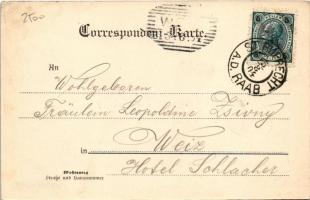 2500
Correspondenz-Karte.
An
Wohlgeboren
Fräulein Leopoldine Zsivny
Weiz
in
Hotel Schlacher
Wohnung
Straße und Hausnummer
A.D. RAAB